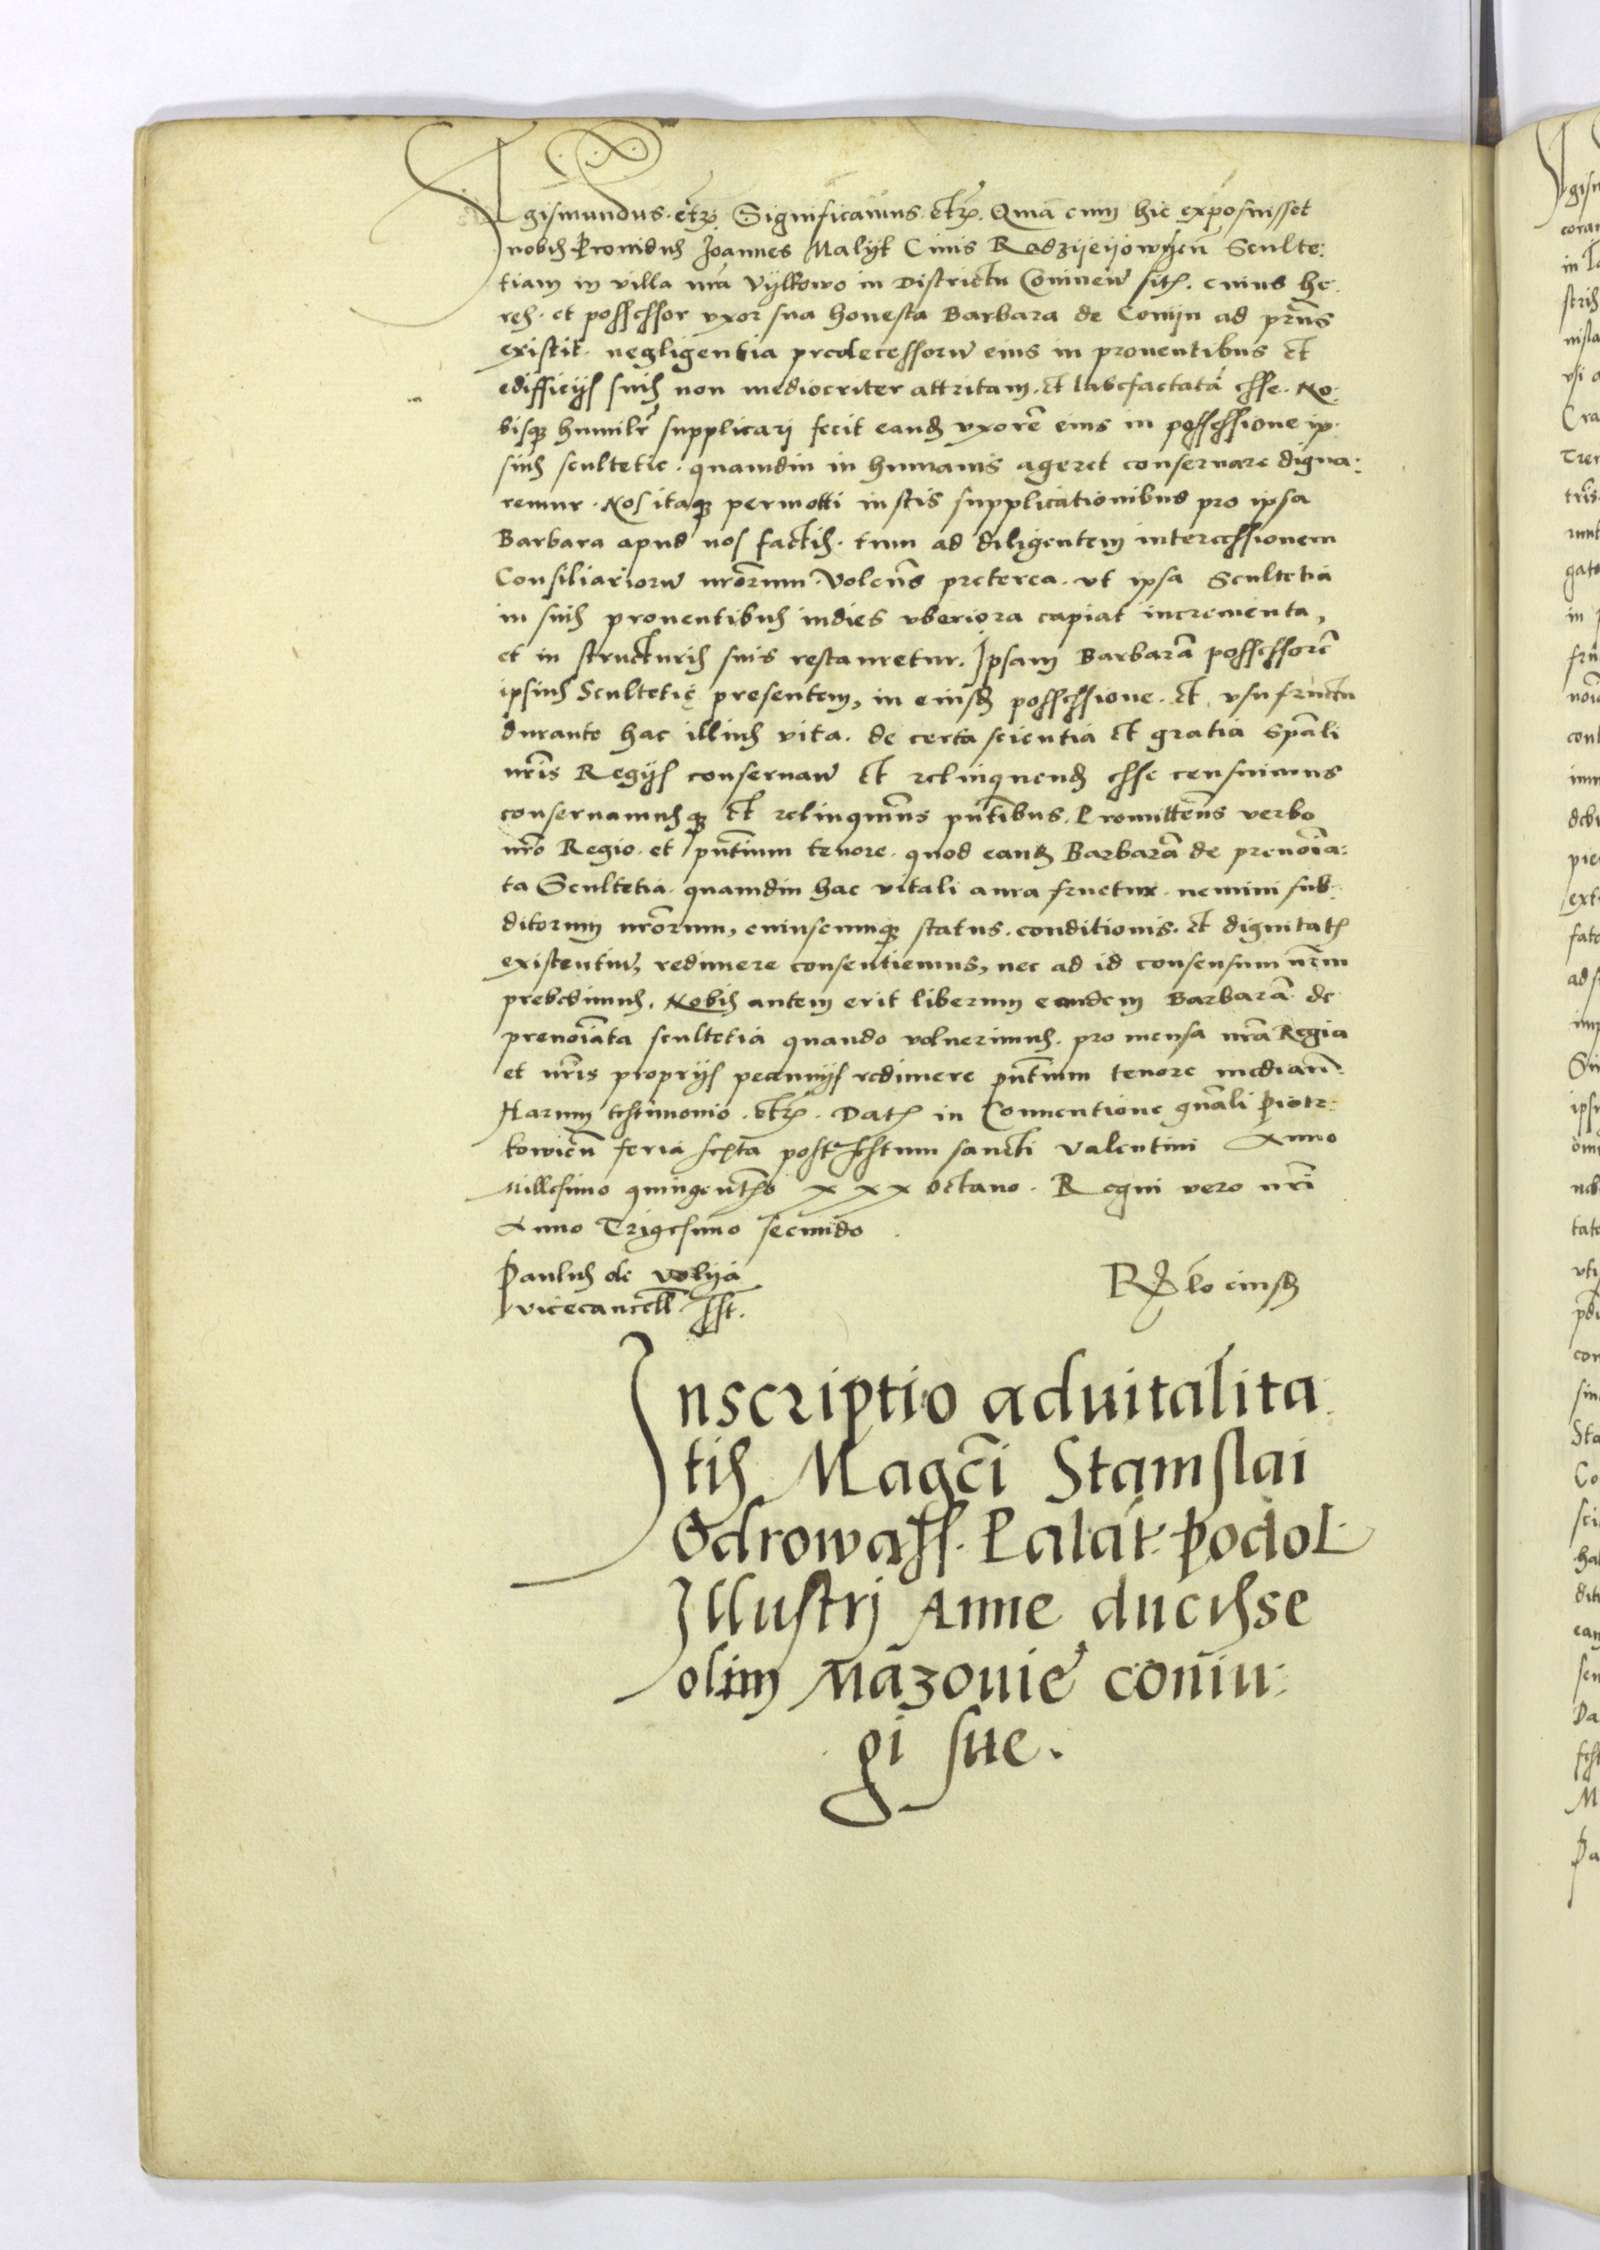 Sigismundus. etr. Significamus. etr. Qmā cum hic exposuisset
nobis Providus Joannes Malyk Civis Radzyeyowyeñ Sculte:
tiam in villa nrā Vylkowo in Districtu Conineñ sit. cuius he:
res. et possessor vxor sua honesta Barbara de Conyn ad prñs
existit. negligentia predecessorū eius in proventibus et
edifficijs suis non mediocriter attritam. et labefactatā esse. No:
bisq humilr supplicari fecit eand vxorē eius in possessione ip:
sius scultetie. quamdiu in humanis ageret conservare digna:
remur. Nos itaq permotti instis supplicationibus pro ipsa
Barbara apud nos factis. tum ad diligentem intercessionem
Consiliariorū nrōrum. Volens preterea. vt ipsa Scultetia
in suis proventibus indies vberiora capiat incrementa,
et in structuris suis restauretur. Ipsam Barbarā possessorē
ipsius Scultetię presentem, in eiusd possessione. et vsufructu
durante hac illius vita. de certa scientia et gratia spāli
nrīs Regijs conservañ et relinquend esse censuimus
conservamusq et relinquimus pñtibus. Promittens verbo
nrō Regio. et pñtium tenore. quod eand Barbarā de prenoīa:
ta Scultetia. quamdiu hac vitali aura fruetur. nemini sub:
ditorum nrōrum, cuiuscumq status. conditionis. et dignitat
existentiū, redimere consentiemus, nec ad id consensum nrm̄
prebebimus. Nobis autem erit liberum eandem Barbarā de
prenoīata scultetia quando voluerimus. pro mensa nrā Regia
et nrīs proprijs pecunijs redimere pñtium tenore mediañ.
Harum testimonio. etr. Dat in Conventione gnāli Piotr:
kowieñ feria sexta post festum sancti Valentini Anno
Millesimo quingentes xxx octavo. Regni vero nrī
Anno Trigesimo secundo.
Paulus de Volya
vicecancell. sst.
Rlo eiusd
Inscriptio aduitalita:
tis Magcī Stanislai
Odrowass. Palat. Podol.
Illustrj Anne ducisse
olim Mazouie coniu:
gi sue.